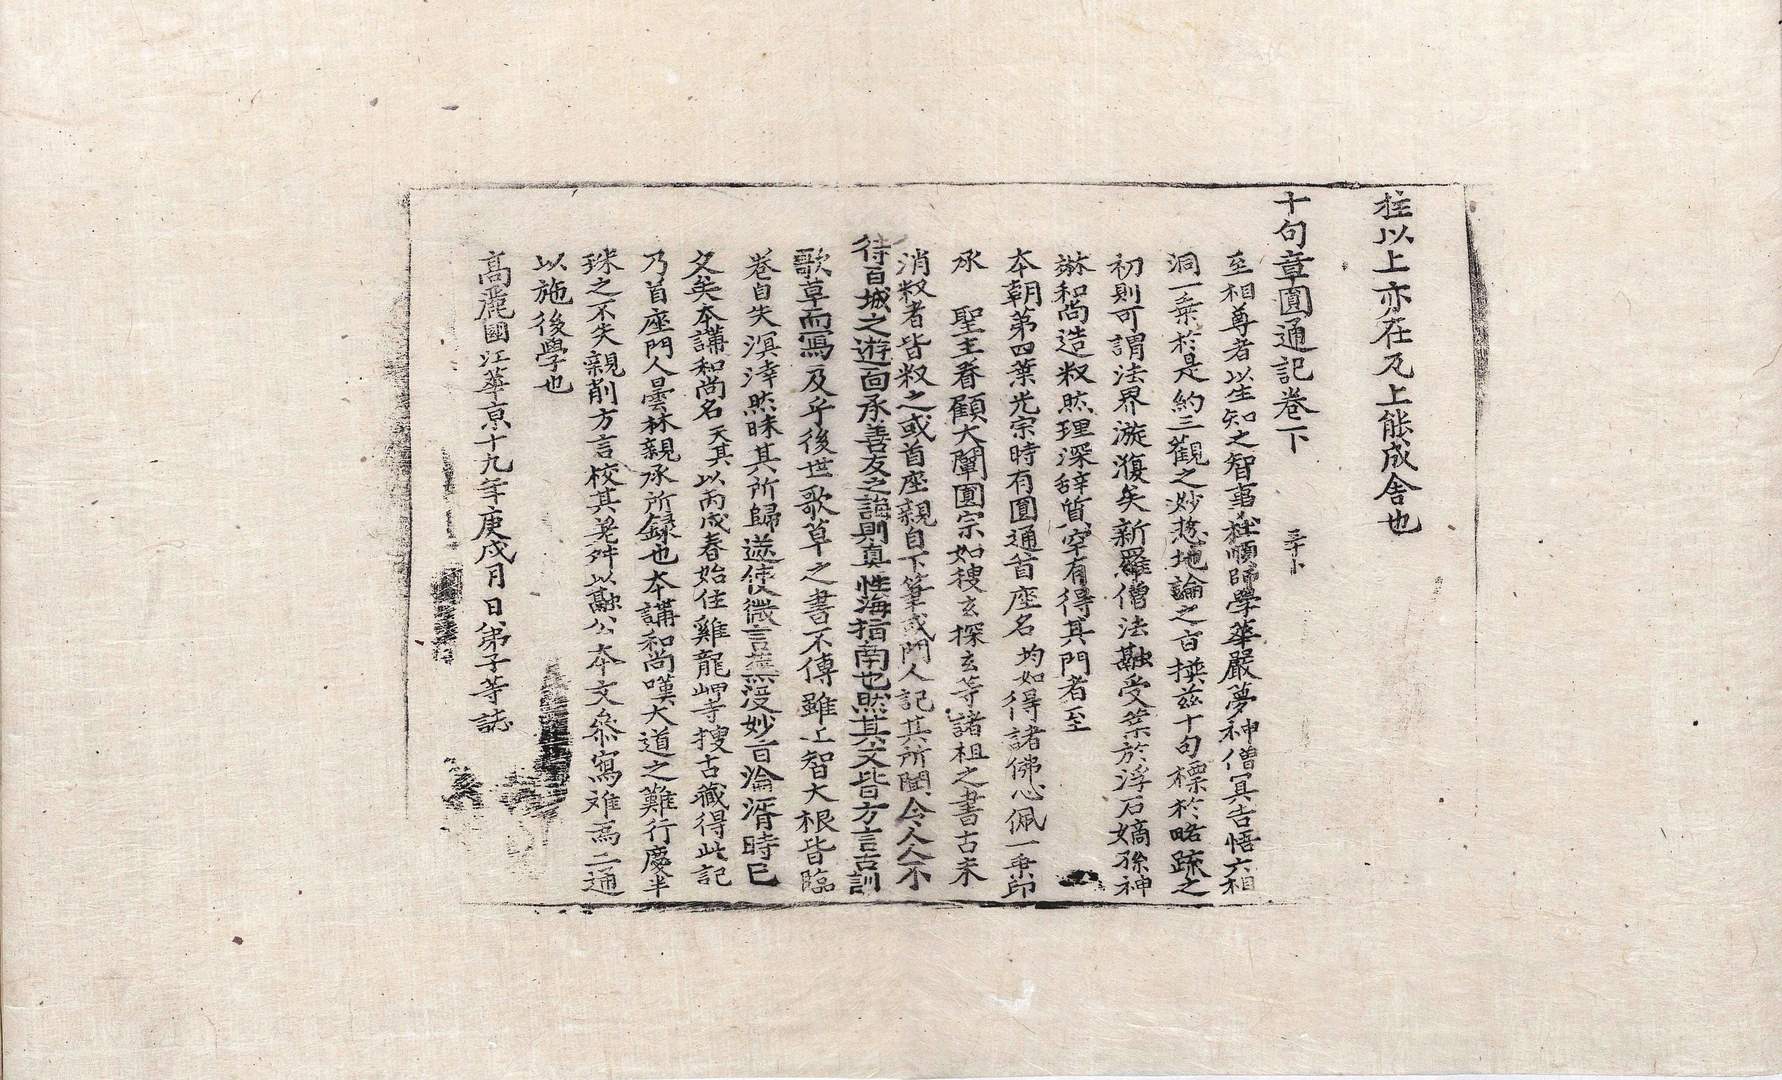 拄以上亦在乃上能成舍也
十句章圓通記卷下
三十卜
至相尊者以生知之智事杜順師學華嚴夢神僧冥告悟六相
洞一乗於是約三觀之妙惣地論之旨撰兹十句標於略䟽之
初則可謂法界漩澓矣新羅僧法融受業於浮石嫡孫神
琳和尚造䆁然理深辞質罕有得其門者至
本朝第四葉光宗時有圓通首座名均如得諸佛心佩一乗印
承 聖王眷顧大闡圓宗如稷玄探玄等諸祖之書古未
消䆁者皆䆁之或首座親自下筆或門人記其所聞令人人不
待百城之遊面承善友之誨則真性海指南也然其文皆方言古訓
歌草而寫及乎後世歌草之書不傳雖上智大根皆臨
卷自失溟涬然昧其所歸遂使微言蕪没妙旨淪湑時已
久矣本講和尚名天其以丙戌春始住雞龍岬寺搜古藏得此記
乃首座門人曇林親承所録也本講和尚嘆大道之難行慶半
珠之不失親削方言校其差舛以融公本文叅寫难爲二通
以施後學也
高麗國江華亰十九年庚戌月 日弟子等誌